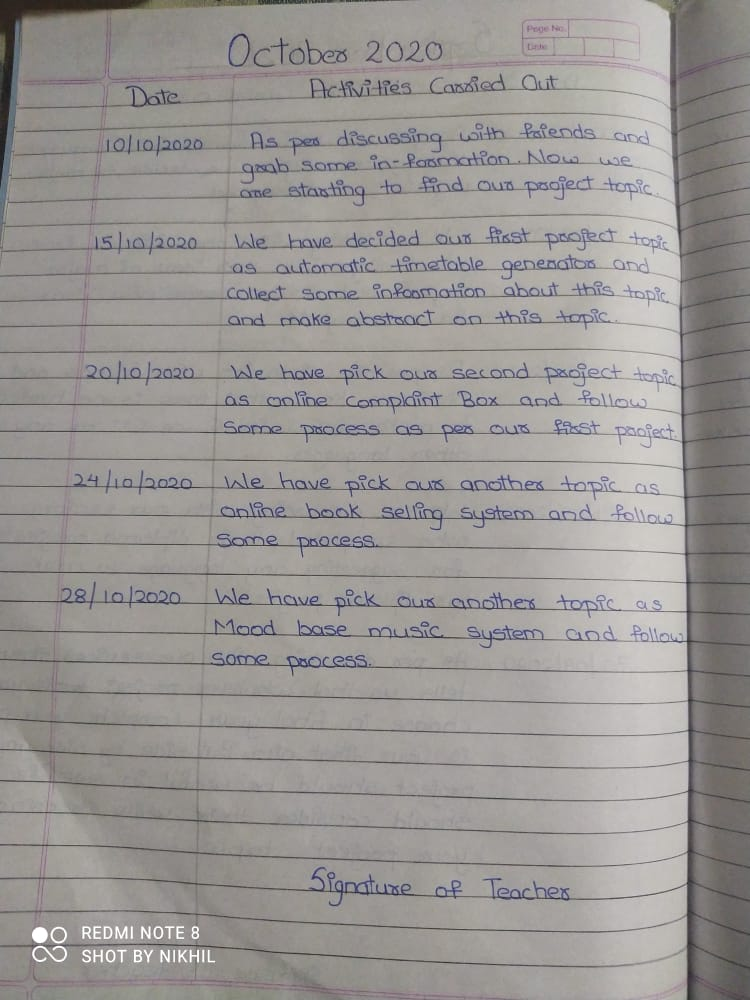 Page No.
Date
October 2020
Date Activities Carried Out
10/10/2020 As per discussing with friends and
grab some in-formation. Now we
are starting to find our project topic.
15/10/2020 We have decided our first project topic
as automatic timetable generator and
collect some information about this topic
and make abstract on this topic.
20/10/2020 We have pick our second project topic
as online Complaint Box and follow
some process as per our first project.
24/10/2020 We have pick our another topic as
online book selling system and follow
some process.
28/10/2020 We have pick our another topic as
Mood base music system and follow
some process.
Signature of Teacher
REDMI NOTE 8
SHOT BY NIKHIL